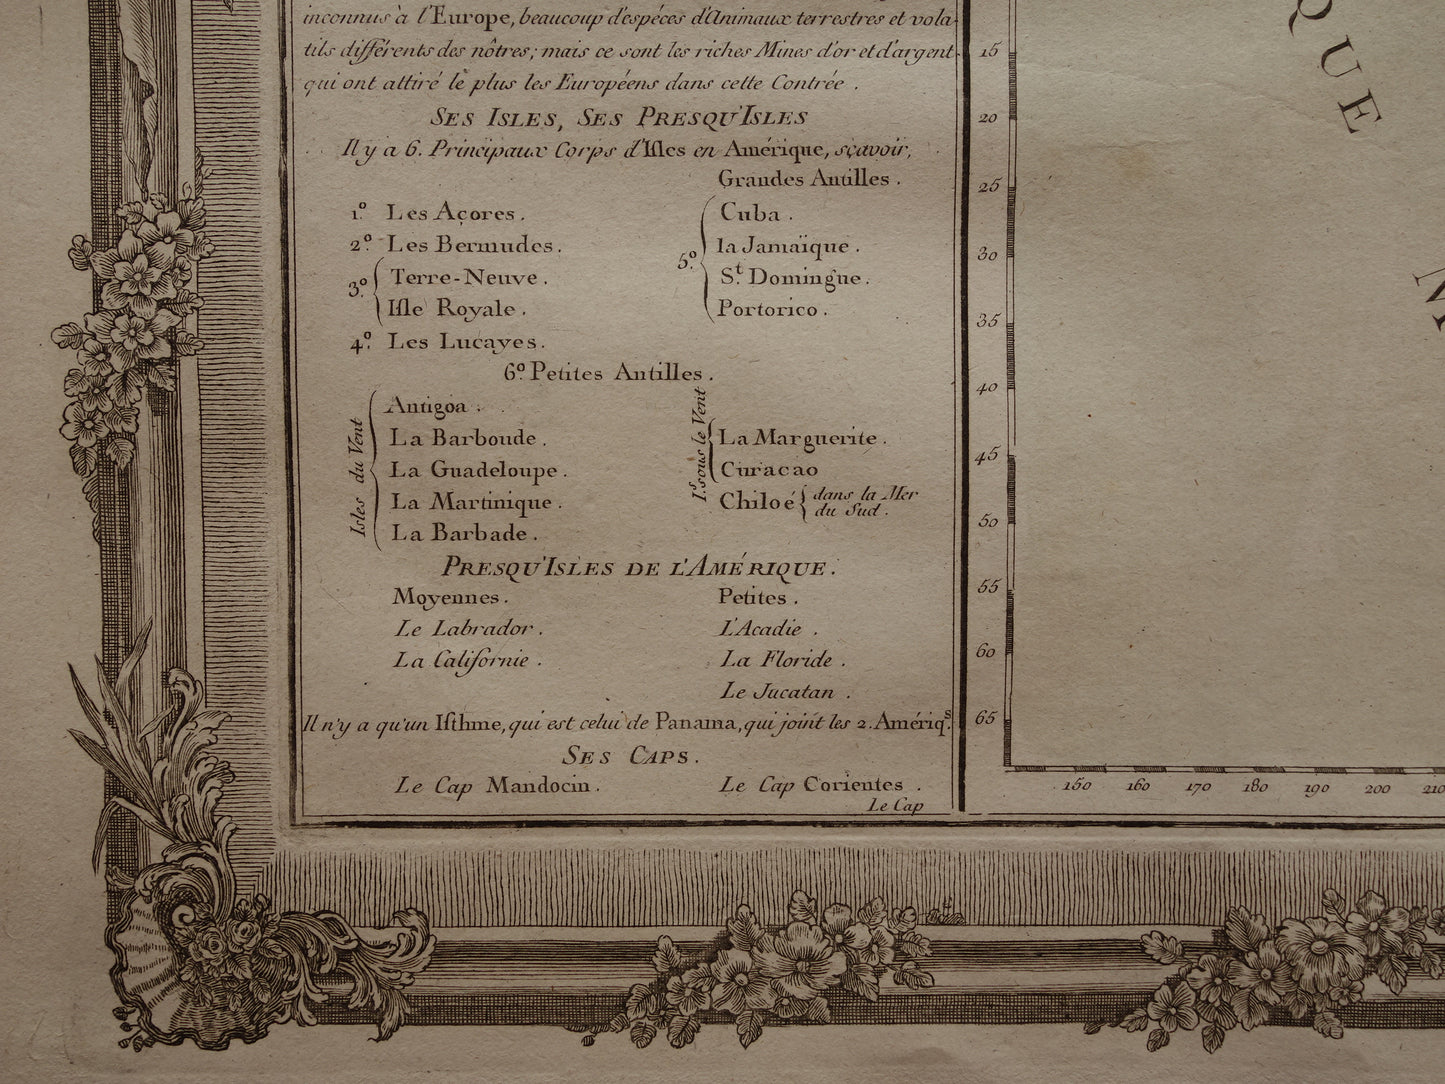 inconnus à l'Europe, beaucoup d'espéces d'Animaux terrestres et vola-
tils différents des nôtres; mais ce sont les riches Mines d'or et d'argent
qui ont attiré le plus les Européens dans cette Contrée.
SES ISLES, SES PRESQU'ISLES
Il y a 6. Principaux Corps d'Isles en Amérique, sçavoir,
Grandes Antilles.
1.º Les Açores.
2.º Les Bermudes.
3.º Terre-Neuve.
Isle Royale.
4.º Les Lucayes.
5.º Cuba.
la Jamaïque.
St. Domingue.
Portorico.
6.º Petites Antilles.
Isles du Vent
Antigoa.
La Barboude.
La Guadeloupe.
La Martinique.
La Barbade.
I.s sous le Vent
La Marguerite.
Curacao
Chiloé dans la Mer
du Sud.
PRESQU'ISLES DE L'AMÉRIQUE.
Moyennes.
Le Labrador.
La Californie.
Petites.
L'Acadie.
La Floride.
Le Jucatan.
Il n'y a qu'un Isthme, qui est celui de Panama, qui joint les 2. Amériq.s
SES CAPS.
Le Cap Mandocin. Le Cap Corientes.
Le Cap
15
20
25
30
35
40
45
50
55
60
65
150 160 170 180 190 200 210
QUE
M